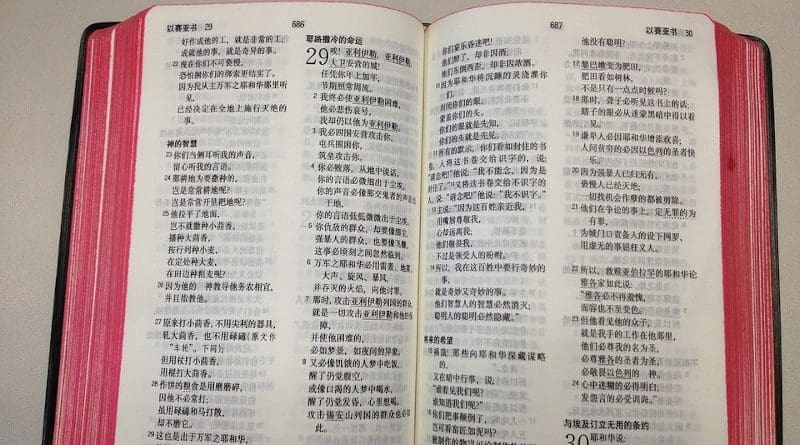 以赛亚书 29
686
好作成他的工,就是非常的工;
成就他的事,就是奇异的事。
22 现在你们不可亵慢,
恐怕捆你们的绑索更结实了。
因为我从主万军之耶和华那里听见,
已经决定在全地上施行灭绝的事。
神的智慧
23 你们当侧耳听我的声音,
留心听我的言语。
24 那耕地为要撒种的,
岂是常常耕地呢?
岂是常常开垦耙地呢?
25 他拉平了地面,
岂不就撒种小茴香,
播种大茴香,
按行列种小麦,
在定处种大麦,
在田边种粗麦呢?
26 因为他的 神教导他务农相宜,
并且指教他。
27 原来打小茴香,不用尖利的器具,
轧大茴香,也不用碌碡(原文作
“车轮”。下同);
但用杖打小茴香,
用棍打大茴香。
28 作饼的粮食是用磨磨碎,
因他不必常打;
虽用碌碡和马打散,
却不磨它。
29 这也是出于万军之耶和华,
耶路撒冷的命运
29 唉!亚利伊勒,亚利伊勒,
大卫安营的城!
任凭你年上加年,
节期照常周流,
2 我终必使亚利伊勒困难,
他必悲伤哀号,
我却仍以他为亚利伊勒。
3 我必四围安营攻击你,
屯兵围困你,
筑垒攻击你。
4 你必败落,从地中说话,
你的言语必微细出于尘埃。
你的声音必像那交鬼者的声音出于地,
你的言语低低微微出于尘埃。
5 你仇敌的群众,却要像细尘,
强暴人的群众,也要像飞糠。
这事必顷刻之间忽然临到。
6 万军之耶和华必用雷轰、地震、
大声、旋风、暴风,
并吞灭的火焰,向他讨罪。
7 那时,攻击亚利伊勒列国的群众,
就是一切攻击亚利伊勒和他的保障,
并使他困难的,
必如梦景,如夜间的异象。
8 又必像饥饿的人梦中吃饭,
醒了仍觉腹空;
或像口渴的人梦中喝水,
醒了仍觉发昏,心里想喝。
攻击锡安山列国的群众也必如此。
687
以赛亚书 30
你们宴乐昏迷吧!
他们醉了,却非因酒;
他们东倒西歪,却非因浓酒。
10 因为耶和华将沉睡的灵浇灌你们,
封闭你们的眼,
蒙盖你们的头。
你们的眼就是先知,
你们的头就是先见。
所有的默示,你们看如封住的书卷,人将这书卷交给识字的,说:
“请念吧!”他说:“我不能念,因为是封住了。”12 又将这书卷交给不识字的人,说:“请念吧!”他说:“我不识字。”
13 主说:“因为这百姓亲近我,
用嘴唇尊敬我,
心却远离我;
他们敬畏我,
不过是领受人的吩咐。
14 所以,我在这百姓中要行奇妙的事,
就是奇妙又奇妙的事。
他们智慧人的智慧必然消灭;
聪明人的聪明必然隐藏。”
将来的希望
15 祸哉!那些向耶和华深藏谋略的,
又在暗中行事,说:
“谁看见我们呢?
谁知道我们呢?”
你们把事颠倒了,
岂可看窑匠如泥吗?
他没有聪明?
17 黎巴嫩变为肥田,
肥田看如树林,
不是只有一点点时候吗?
18 那时,聋子必听见这书上的话;
瞎子的眼必从迷蒙黑暗中得以看见。
19 谦卑人必因耶和华增添欢喜;
人间贫穷的必因以色列的圣者快乐。
20 因为强暴人已归无有,
亵慢人已经灭绝;
一切找机会作孽的都被剪除。
21 他们在争讼的事上,定无罪的为有罪,
为城门口责备人的设下网罗,
用虚无的事屈枉义人。
22 所以,救赎亚伯拉罕的耶和华论雅各家如此说:
“雅各必不再羞愧,
面容也不至变色。
23 但他看见他的众子,
就是我手的工作在他那里,
他们必尊我的名为圣,
必尊雅各的圣者为圣,
必敬畏以色列的 神。
24 心中迷糊的必得明白;
发怨言的必受训诲。”
与埃及订立无用的条约
30 耶和华说: